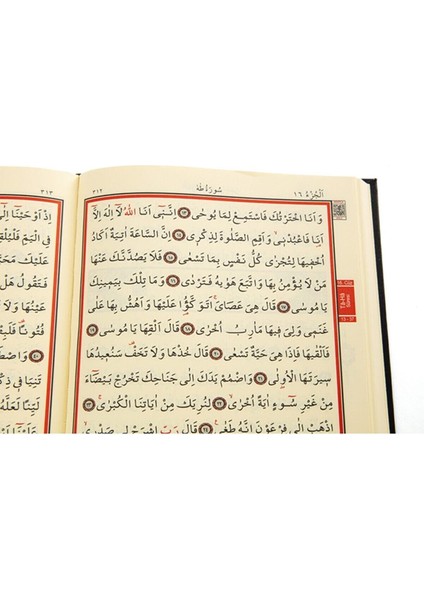 اَلْجُزْءُ ١٦
سُورَةُ طٰهٰ
٣١٢
وَاَنَا اخْتَرْتُكَ فَاسْتَمِعْ لِمَا يُوحٰى ﴿١٣﴾ اِنَّنٖٓي اَنَا اللّٰهُ لَٓا اِلٰهَ اِلَّٓا
اَنَا۬ فَاعْبُدْنٖيۙ وَاَقِمِ الصَّلٰوةَ لِذِكْرٖي ﴿١٤﴾ اِنَّ السَّاعَةَ اٰتِيَةٌ اَكَادُ
اُخْفٖيهَا لِتُجْزٰى كُلُّ نَفْسٍ بِمَا تَسْعٰى ﴿١٥﴾ فَلَا يَصُدَّنَّكَ عَنْهَا
مَنْ لَا يُؤْمِنُ بِهَا وَاتَّبَعَ هَوٰيهُ فَتَرْدٰى ﴿١٦﴾ وَمَا تِلْكَ بِيَمٖينِكَ
يَا مُوسٰى ﴿١٧﴾ قَالَ هِيَ عَصَايَۚ اَتَوَكَّؤُ۬ا عَلَيْهَا وَاَهُشُّ بِهَا عَلٰى
غَنَمٖي وَلِيَ فٖيهَا مَاٰرِبُ اُخْرٰى ﴿١٨﴾ قَالَ اَلْقِهَا يَا مُوسٰى ﴿١٩﴾
فَاَلْقٰيهَا فَاِذَا هِيَ حَيَّةٌ تَسْعٰى ﴿٢٠﴾ قَالَ خُذْهَا وَلَا تَخَفْ۠ سَنُعٖيدُهَا
سٖيرَتَهَا الْاُو۫لٰى ﴿٢١﴾ وَاضْمُمْ يَدَكَ اِلٰى جَنَاحِكَ تَخْرُجْ بَيْضَٓاءَ
مِنْ غَيْرِ سُٓوءٍ اٰيَةً اُخْرٰىۙ ﴿٢٢﴾ لِنُرِيَكَ مِنْ اٰيَاتِنَا الْكُبْرٰىۚ ﴿٢٣﴾
اِذْهَبْ اِلٰى فِرْعَوْنَ اِنَّهُ طَغٰى۟ ﴿٢٤﴾ قَالَ رَبِّ اشْرَحْ لٖي صَدْرٖيۙ
Tâ-Hâ
٣١٣
اِذْ اَوْحَيْنَٓا اِلٰٓى
فِي الْيَمِّ
عَلَيْكَ
فَتَقُولُ هَلْ
عَيْنُهَا
فُتُونًا
﴿٤٠﴾
تَنِيَا فٖي
لَيِّنًا لَعَلَّهُ
عَلَيْنَٓا